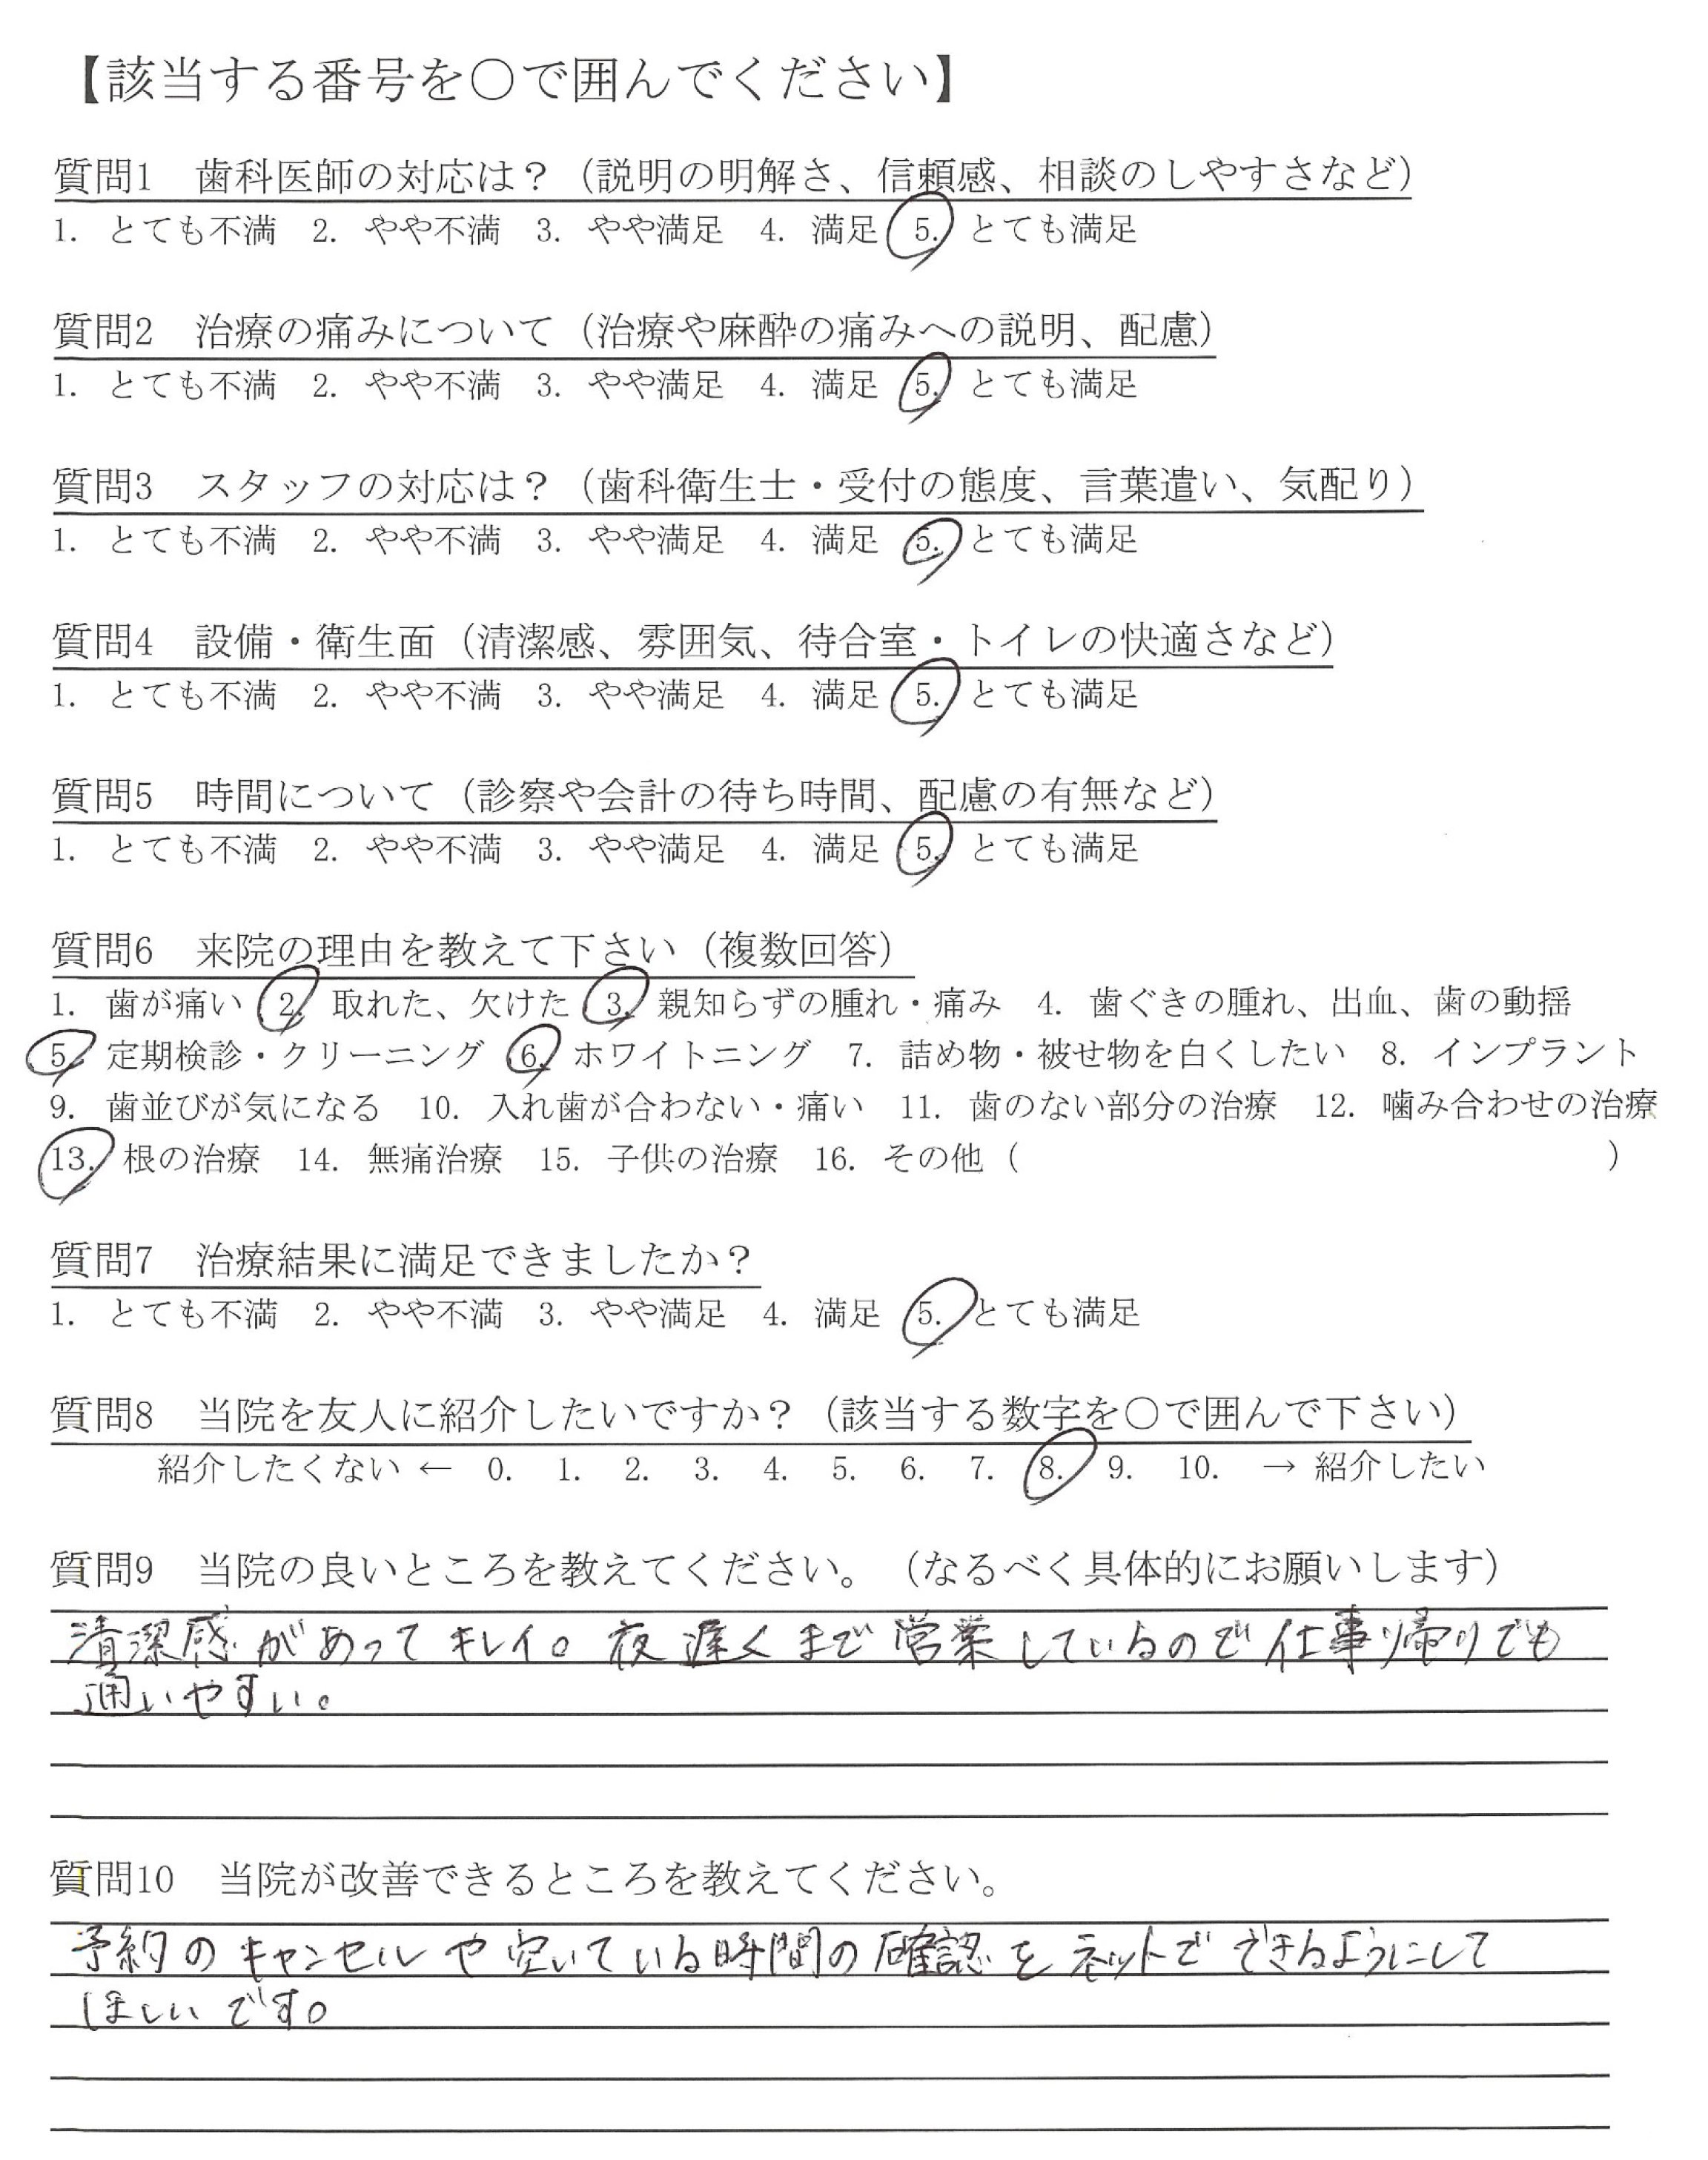 【該当する番号を〇で囲んでください】
質問1　歯科医師の対応は？（説明の明解さ、信頼感、相談のしやすさなど）
1. とても不満　2. やや不満　3. やや満足　4. 満足　5. とても満足
質問2　治療の痛みについて（治療や麻酔の痛みへの説明、配慮）
1. とても不満　2. やや不満　3. やや満足　4. 満足　5. とても満足
質問3　スタッフの対応は？（歯科衛生士・受付の態度、言葉遣い、気配り）
1. とても不満　2. やや不満　3. やや満足　4. 満足　5. とても満足
質問4　設備・衛生面（清潔感、雰囲気、待合室・トイレの快適さなど）
1. とても不満　2. やや不満　3. やや満足　4. 満足　5. とても満足
質問5　時間について（診察や会計の待ち時間、配慮の有無など）
1. とても不満　2. やや不満　3. やや満足　4. 満足　5. とても満足
質問6　来院の理由を教えて下さい（複数回答）
1. 歯が痛い　2. 取れた、欠けた　3. 親知らずの腫れ・痛み　4. 歯ぐきの腫れ、出血、歯の動揺
5. 定期検診・クリーニング　6. ホワイトニング　7. 詰め物・被せ物を白くしたい　8. インプラント
9. 歯並びが気になる　10. 入れ歯が合わない・痛い　11. 歯のない部分の治療　12. 噛み合わせの治療
13. 根の治療　14. 無痛治療　15. 子供の治療　16. その他（　　　　　　　　　　）
質問7　治療結果に満足できましたか？
1. とても不満　2. やや不満　3. やや満足　4. 満足　5. とても満足
質問8　当院を友人に紹介したいですか？（該当する数字を〇で囲んで下さい）
紹介したくない ← 0. 1. 2. 3. 4. 5. 6. 7. 8. 9. 10. → 紹介したい
質問9　当院の良いところを教えてください。（なるべく具体的にお願いします）
清潔感があってキレイ。夜遅くまで営業しているので仕事帰りでも
通いやすい。
質問10　当院が改善できるところを教えてください。
予約のキャンセルや空いている時間の確認をネットでできるようにして
ほしいです。